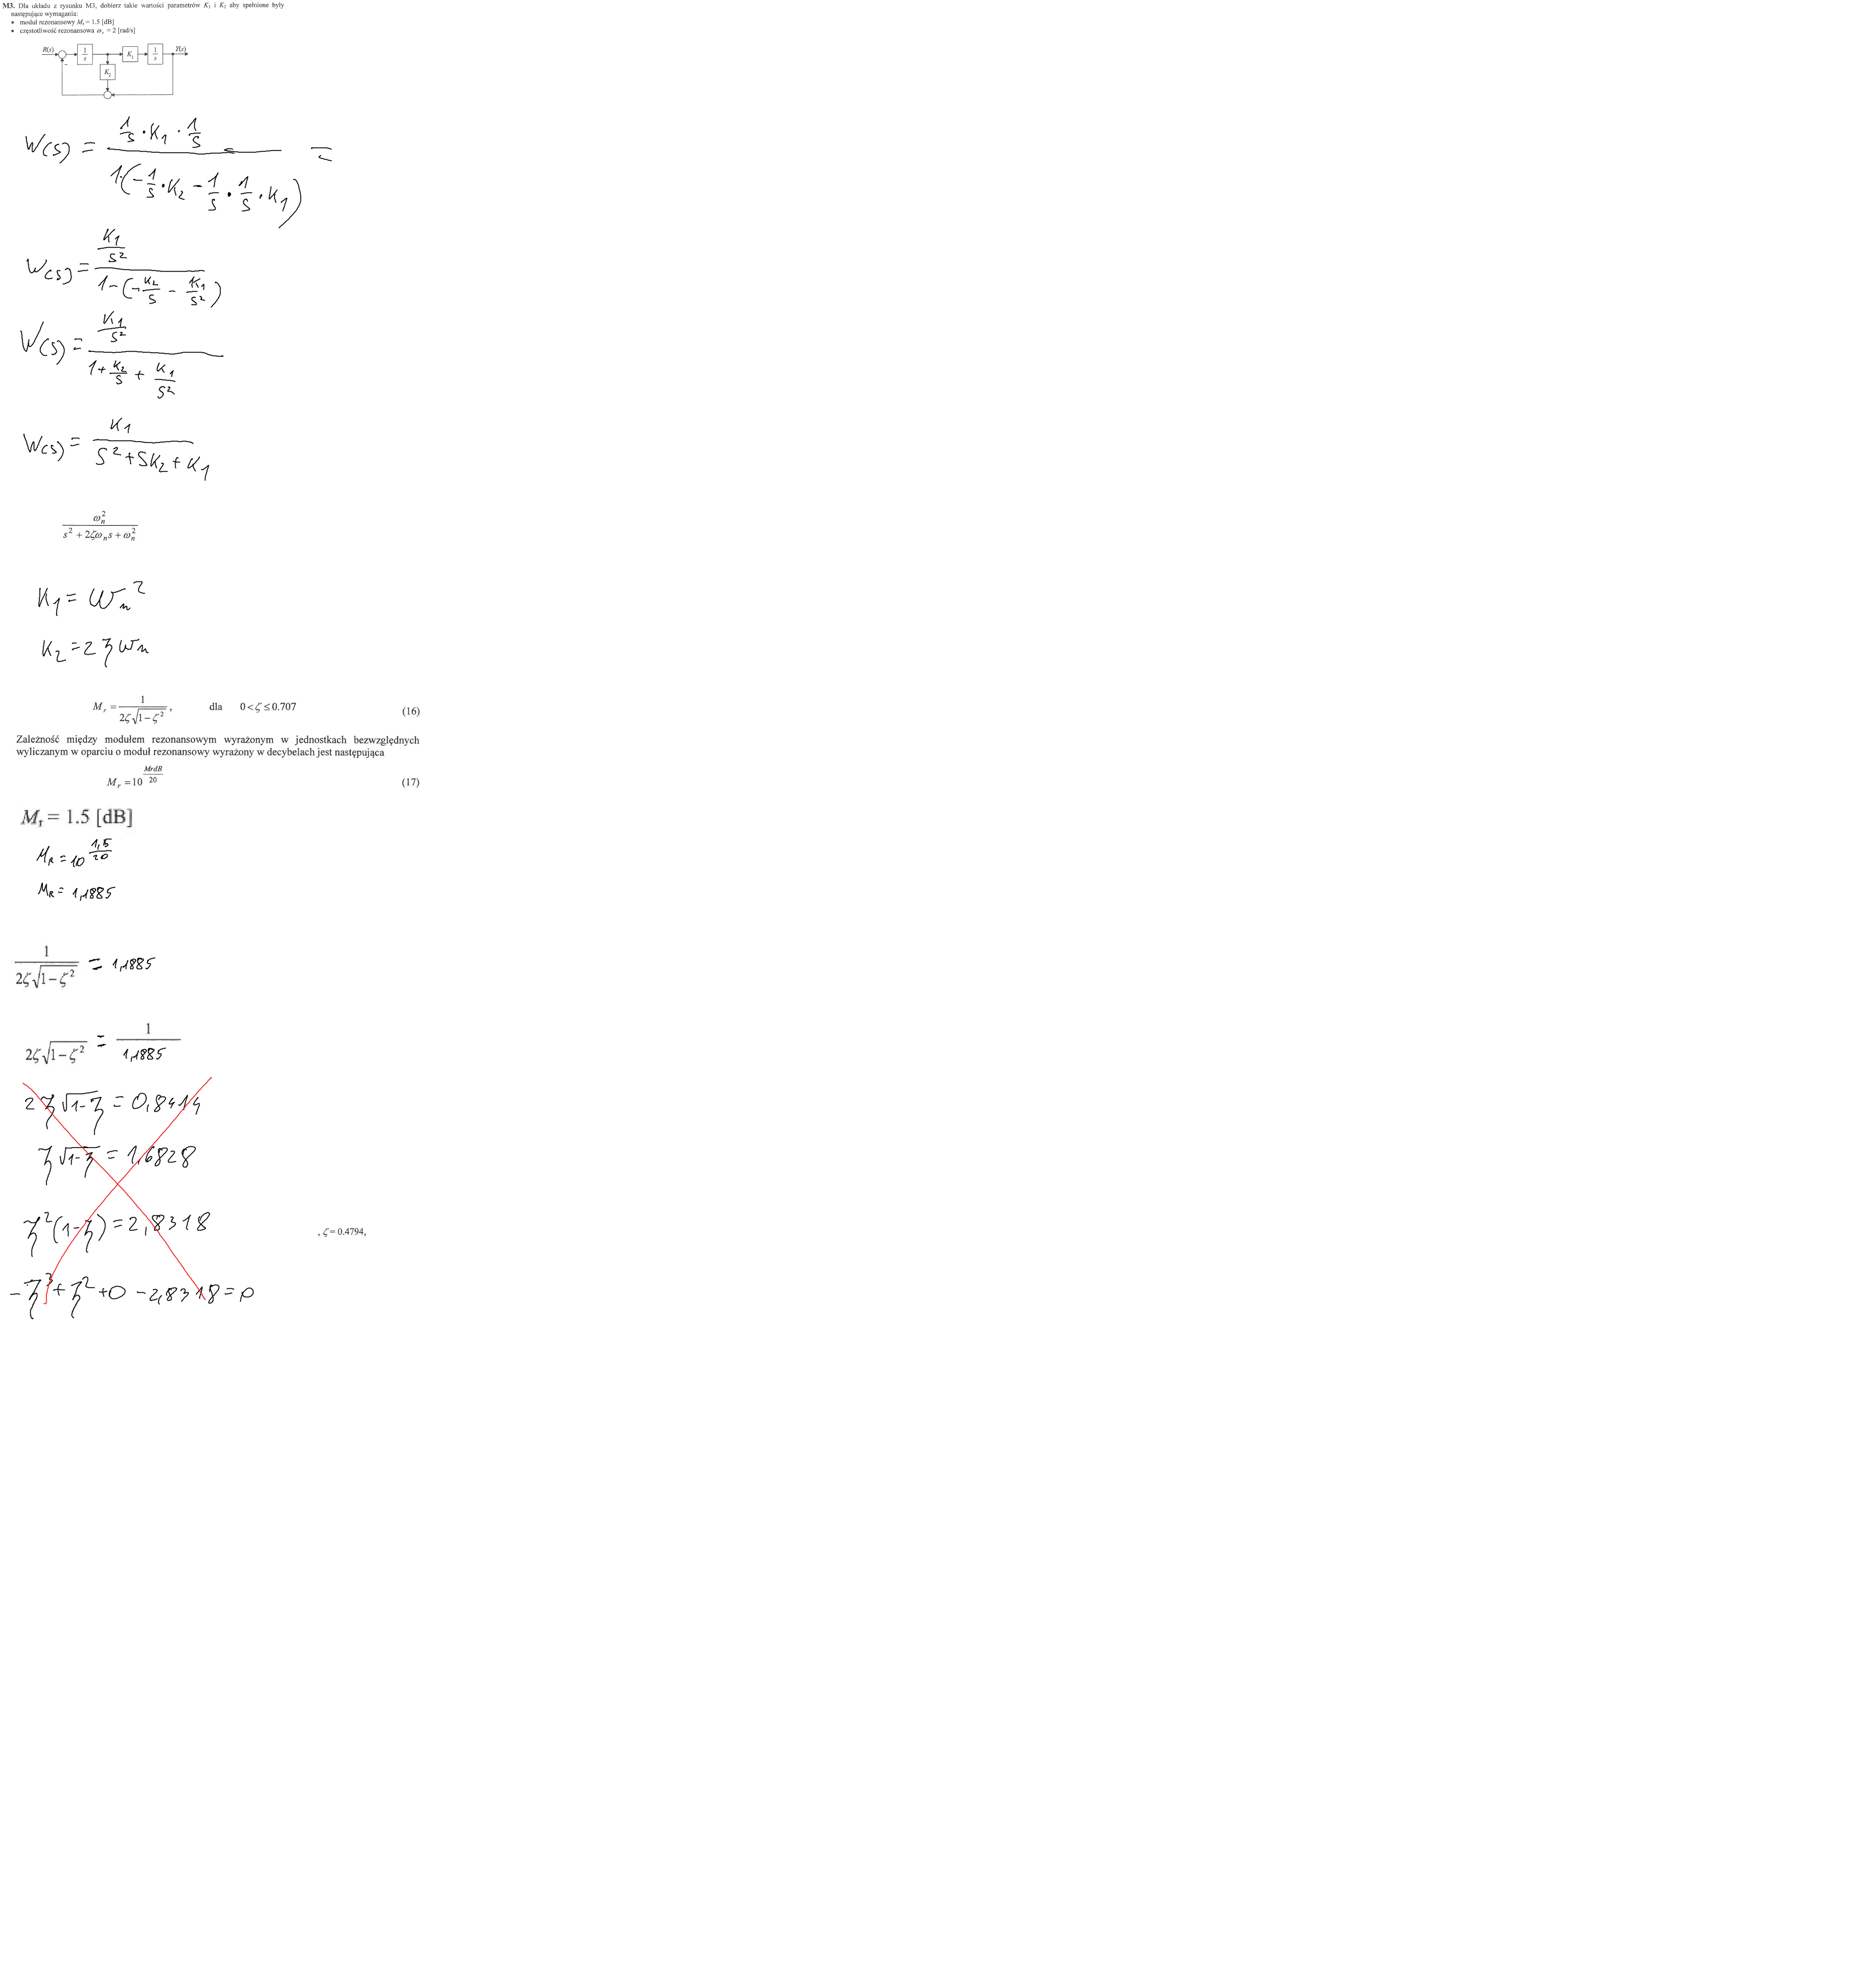 M3. Dla układu z rysunku M3, dobierz takie wartości parametrów K₁ i K₂ aby spełnione były
następujące wymagania:
• moduł rezonansowy Mᵣ = 1.5 [dB]
• częstotliwość rezonansowa ωᵣ = 2 [rad/s]
R(s) 1/s K₁ 1/s Y(s)
-
K₂
W(s) = (1/s · K₁ · 1/s) / (1·(-1/s · K₂ - 1/s · 1/s · K₁)) =
W(s) = (K₁/s²) / (1-(-K₂/s - K₁/s²))
W(s) = (K₁/s²) / (1 + K₂/s + K₁/s²)
W(s) = K₁ / (s² + sK₂ + K₁)
ωₙ² / (s² + 2ζωₙs + ωₙ²)
K₁ = ωₙ²
K₂ = 2ζωₙ
Mᵣ = 1 / (2ζ√(1-ζ²)), dla 0 < ζ ≤ 0.707 (16)
Zależność między modułem rezonansowym wyrażonym w jednostkach bezwzględnych
wyliczanym w oparciu o moduł rezonansowy wyrażony w decybelach jest następująca
Mᵣ = 10^(MrdB/20) (17)
Mᵣ = 1.5 [dB]
M_R = 10^(1,5/20)
M_R = 1,1885
1 / (2ζ√(1-ζ²)) = 1,1885
2ζ√(1-ζ²) = 1 / 1,1885
2ζ√(1-ζ) = 0,8414
ζ√(1-ζ) = 1,6828
ζ²(1-ζ) = 2,8318
, ζ = 0.4794,
-ζ³ + ζ² + 0 - 2,8318 = 0